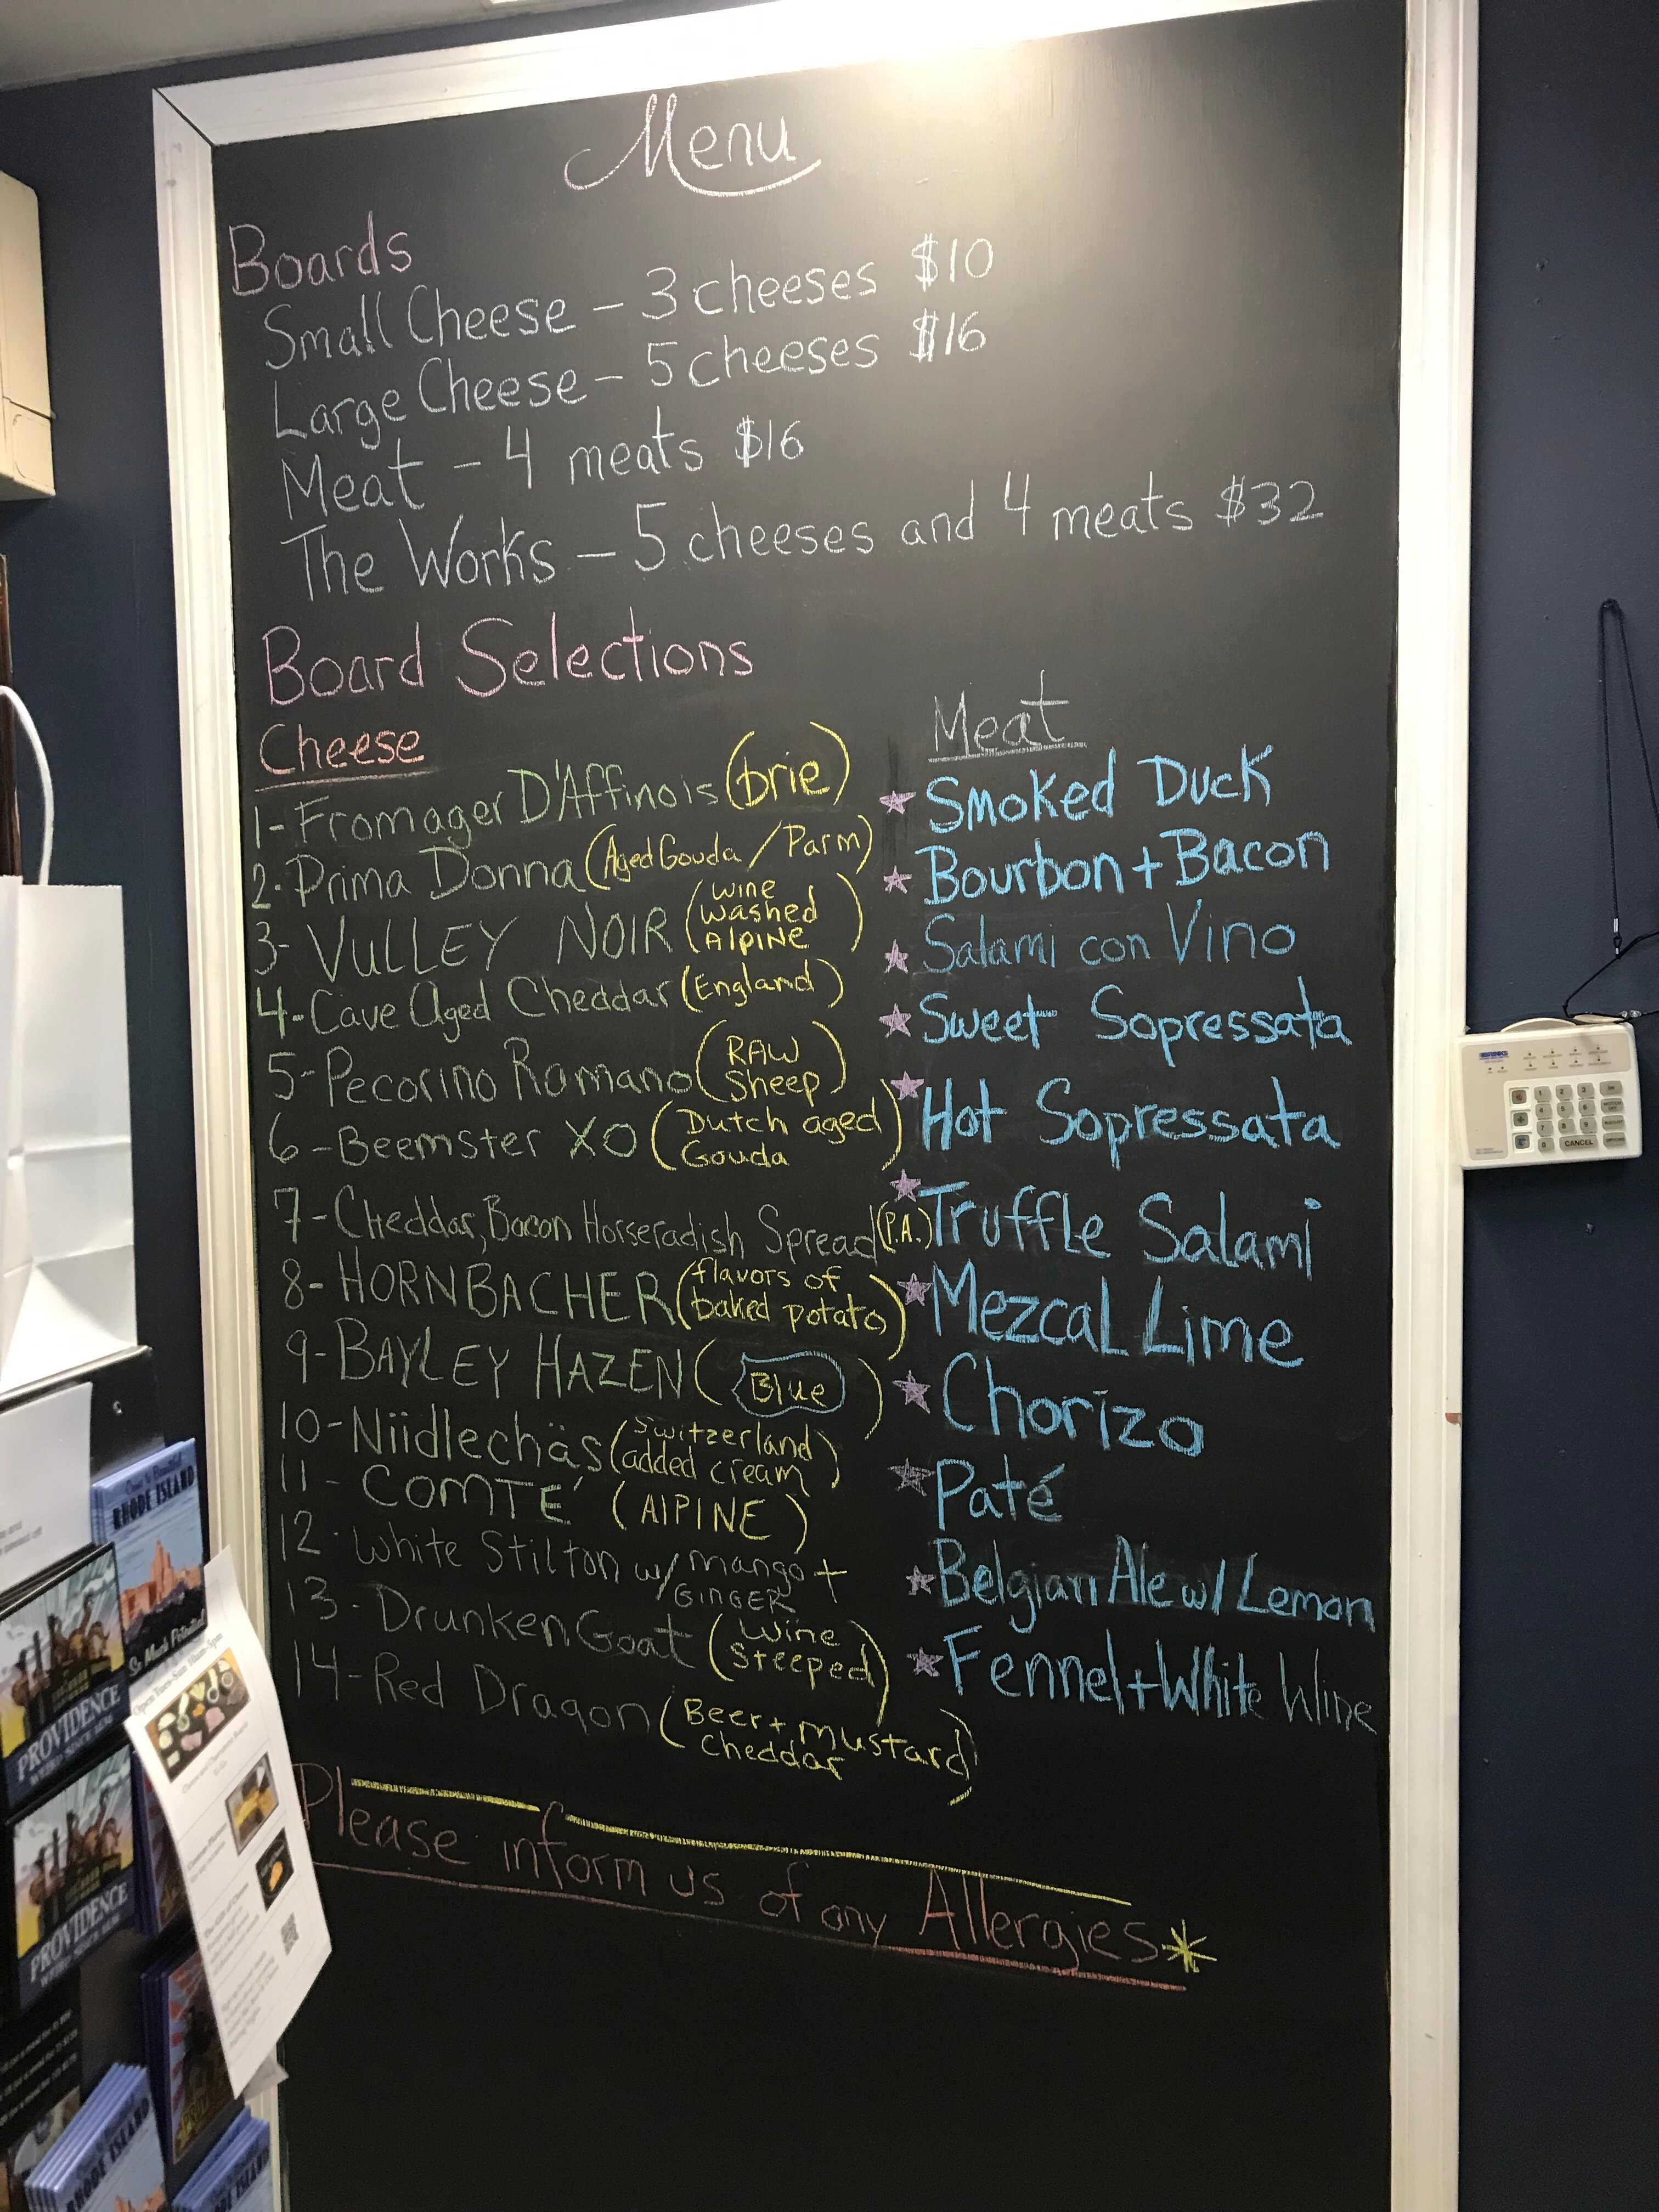 Menu
Boards
Small Cheese - 3 cheeses $10
Large Cheese - 5 cheeses $16
Meat - 4 meats $16
The Works - 5 cheeses and 4 meats $32
Board Selections
Cheese
1- Fromager D'Affinois (brie)
2- Prima Donna (Aged Gouda / Parm)
3- VULLEY NOIR (wine
washed
AlpINE)
4- Cave Aged Cheddar (England)
5- Pecorino Romano (RAW
Sheep)
6- Beemster XO (Dutch aged
Gouda)
7- Cheddar, Bacon Horseradish Spread (P.A.)
8- HORNBACHER (flavors of
baked potato)
9- BAYLEY HAZEN (Blue)
10- Niidlechäs (Switzerland
added cream)
11- COMTÉ (AlPINE)
12- White Stilton w/ mango +
GINGER
13- Drunken Goat (Wine
Steeped)
14- Red Dragon (Beer + mustard
Cheddar)
Meat
Smoked Duck
Bourbon + Bacon
Salami con Vino
Sweet Sopressata
Hot Sopressata
Truffle Salami
Mezcal Lime
Chorizo
Paté
Belgian Ale w/ Lemon
Fennel + White Wine
Please inform us of any Allergies*
RHODE ISLAND
So Much Potential
Open Tues-Sun 10am-5pm
PROVIDENCE
PROVIDENCE
RHODE ISLAND
1 2 3
4 5 6
7 8 9
0 CANCEL